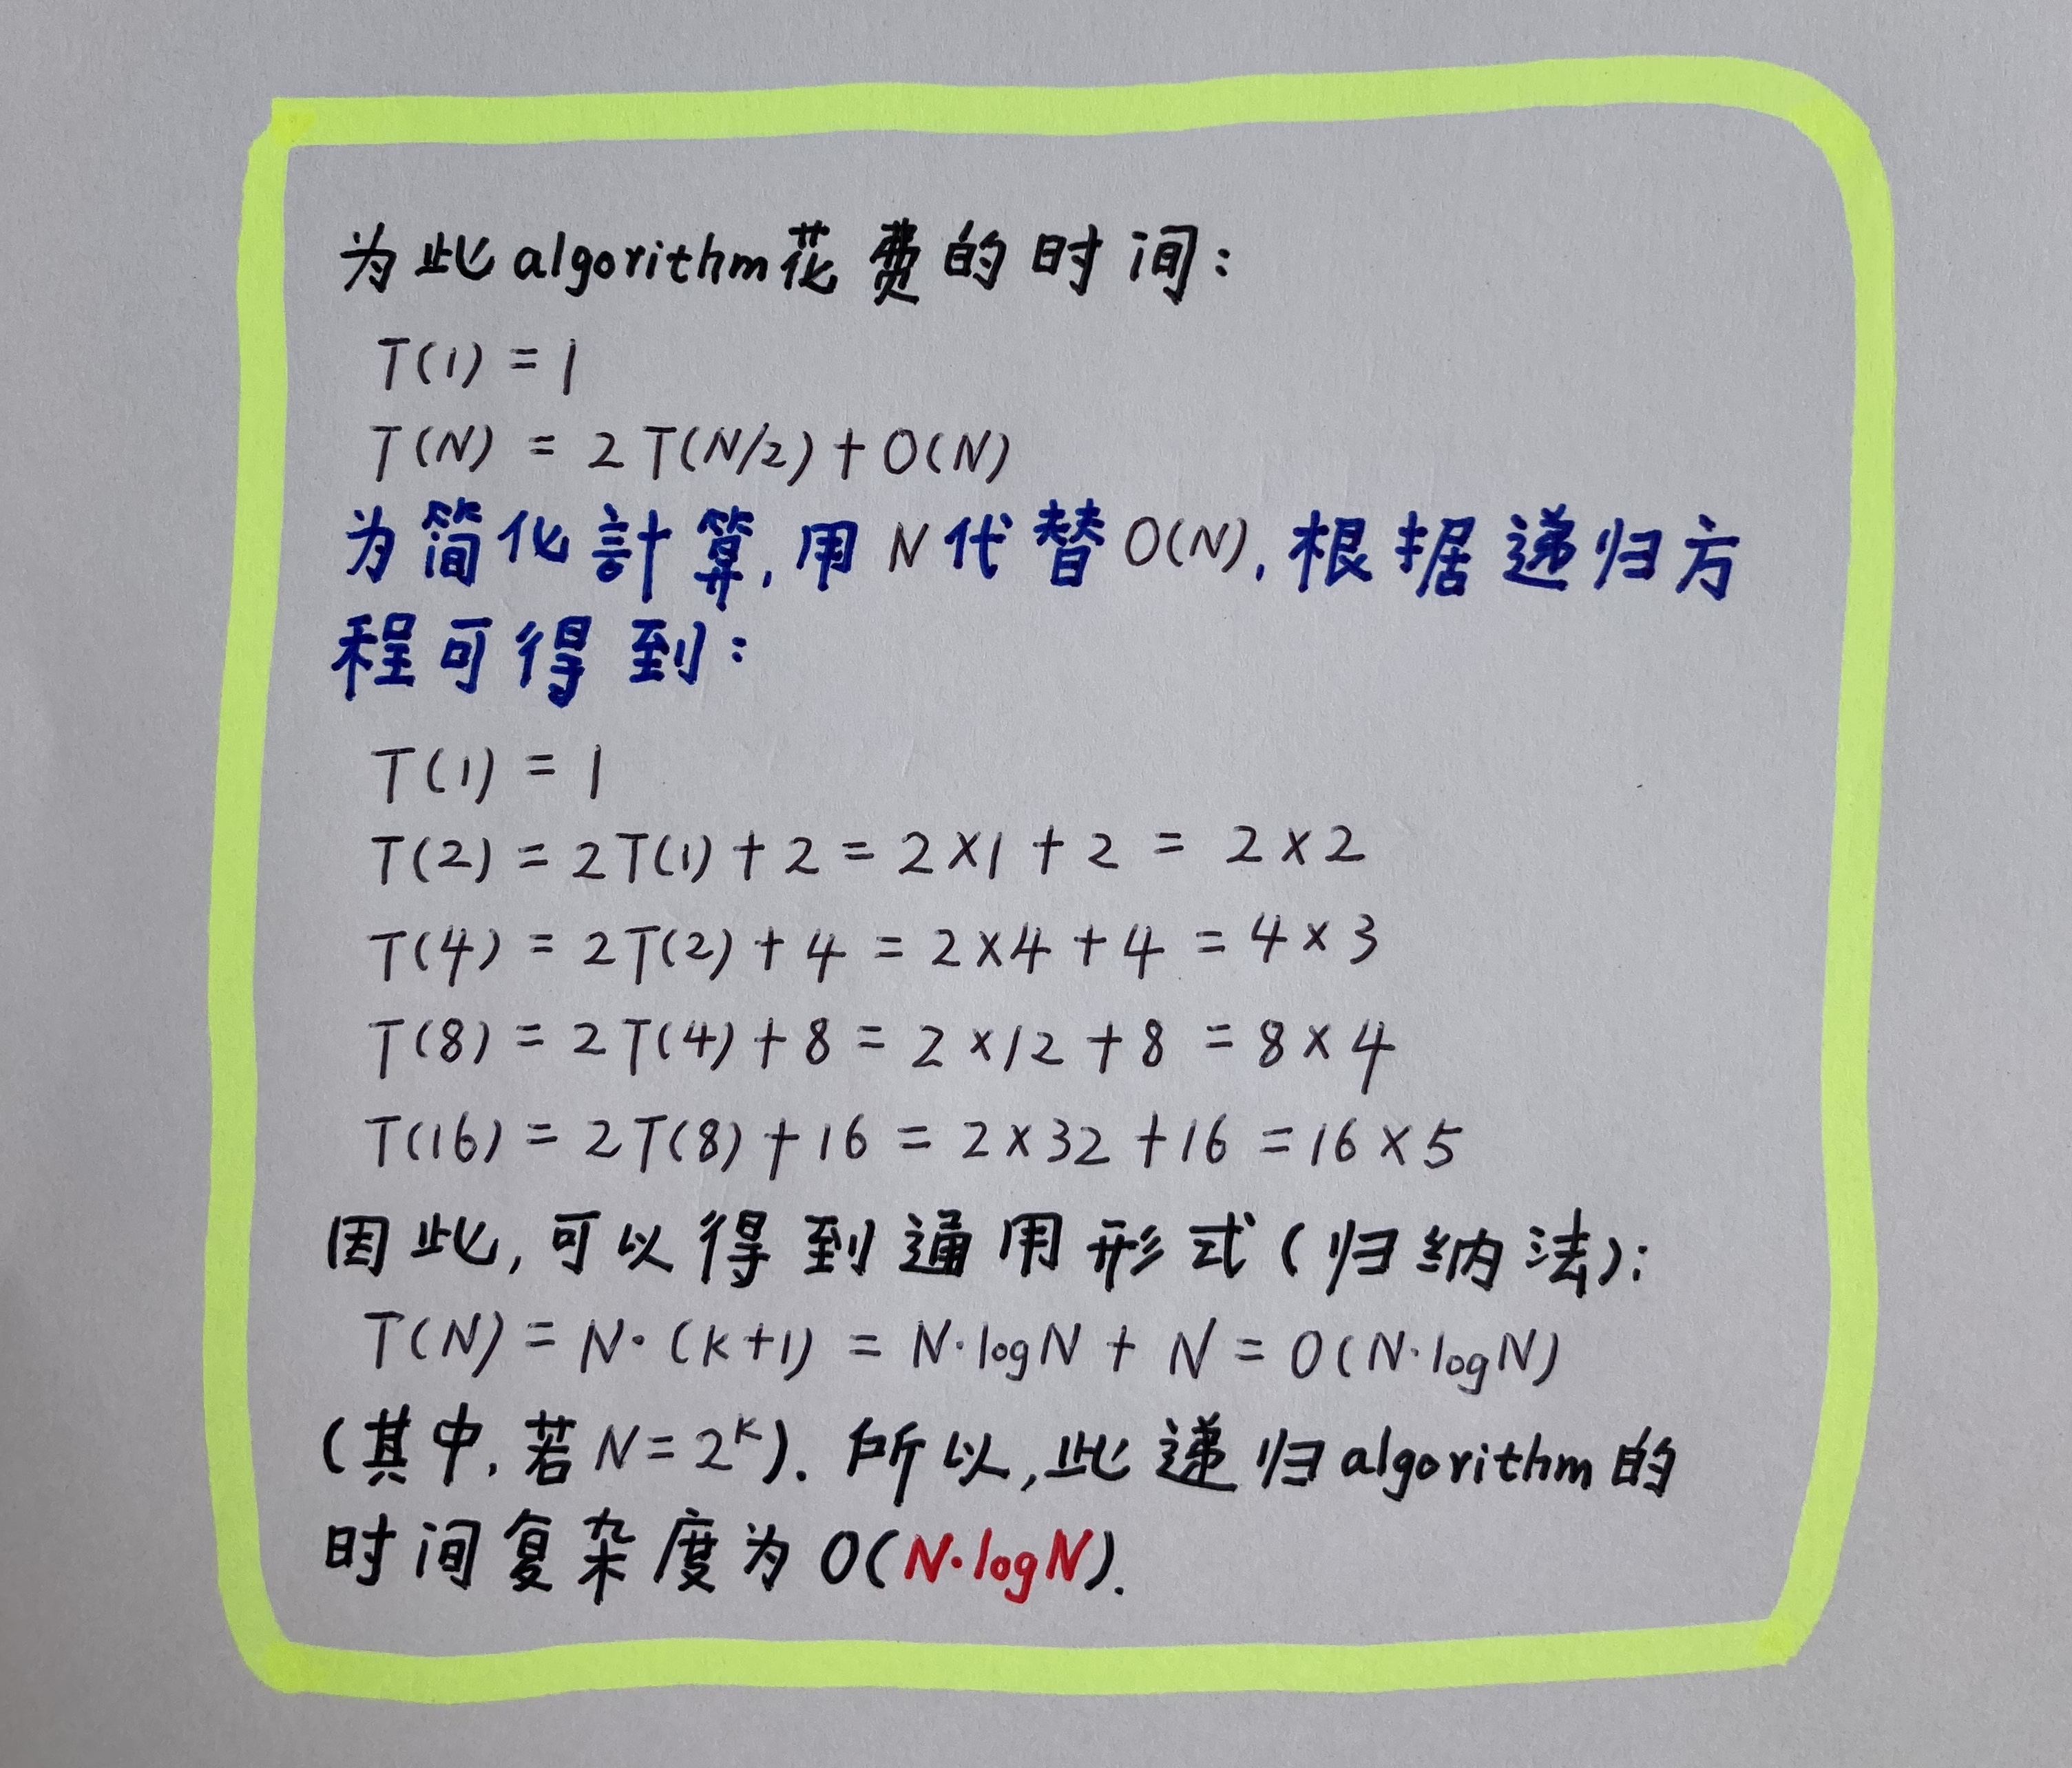 为此algorithm花费的时间:
T(1) = 1
T(N) = 2T(N/2)+O(N)
为简化計算,用N代替O(N),根据递归方
程可得到:
T(1) = 1
T(2) = 2T(1)+2 = 2×1+2 = 2×2
T(4) = 2T(2)+4 = 2×4+4 = 4×3
T(8) = 2T(4)+8 = 2×12+8 = 8×4
T(16) = 2T(8)+16 = 2×32+16 = 16×5
因此,可以得到通用形式(归纳法):
T(N) = N·(k+1) = N·logN + N = O(N·logN)
(其中,若N=2ᵏ). 所以,此递归algorithm的
时间复杂度为O(N·logN).